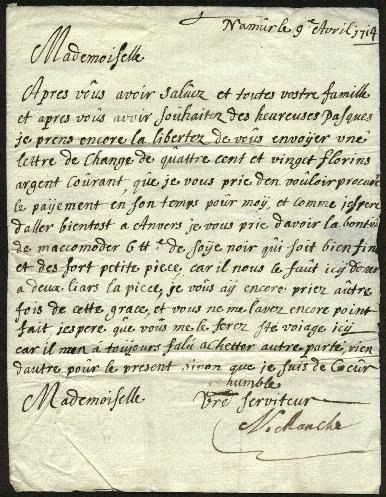 Namûr le 9.e Avril 1714
Mademoiselle
Apres vôus avoir salûez et toutes vostre famille
et apres vôus avoir souhaitez des heureuses Pasques
je prens encore la libertez de vôus envoyer vne
lettre de Change de quattre cent et vinget florins
argent Coûrant, qûe je vous prie den voûloir procure
le payement en son temps pour môy, et comme jespere
d'aller bientost a Anvers je vous prie d'avoir la bont
de maccomoder 6 tt.e de soÿe noir qui soit bien fin
et des fort petite piece, car il nous le faût icÿ doner
a deux liars la piece, je vôus aÿ encore priez autre
fois de cette grace, et vous ne me lavez encore point
fait jespere que vôus me le ferez ste voiage icÿ
car il men à toûjours falû achettor autre parte, rien
dautre pour le present sinon que je suis de Coeur
humble
Mademoiselle Vre serviteur